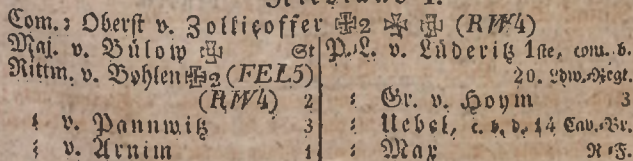 Com.: Oberst v. Zollicoffer ✠2 ✠ ✠ (RW4)
Maj. v. Bülow ✠ St
Rittm. v. Bohlen ✠2 (FEL5)
(RW4) 2
: v. Pannwitz 3
: v. Arnim 1
P.-L. v. Lüderitz 1ste, com. b.
20. Ldw.-Regt.
: Gr. v. Hoym 3
: Uebel, c. b. d. 14 Cav.-Br.
: May R.-F.